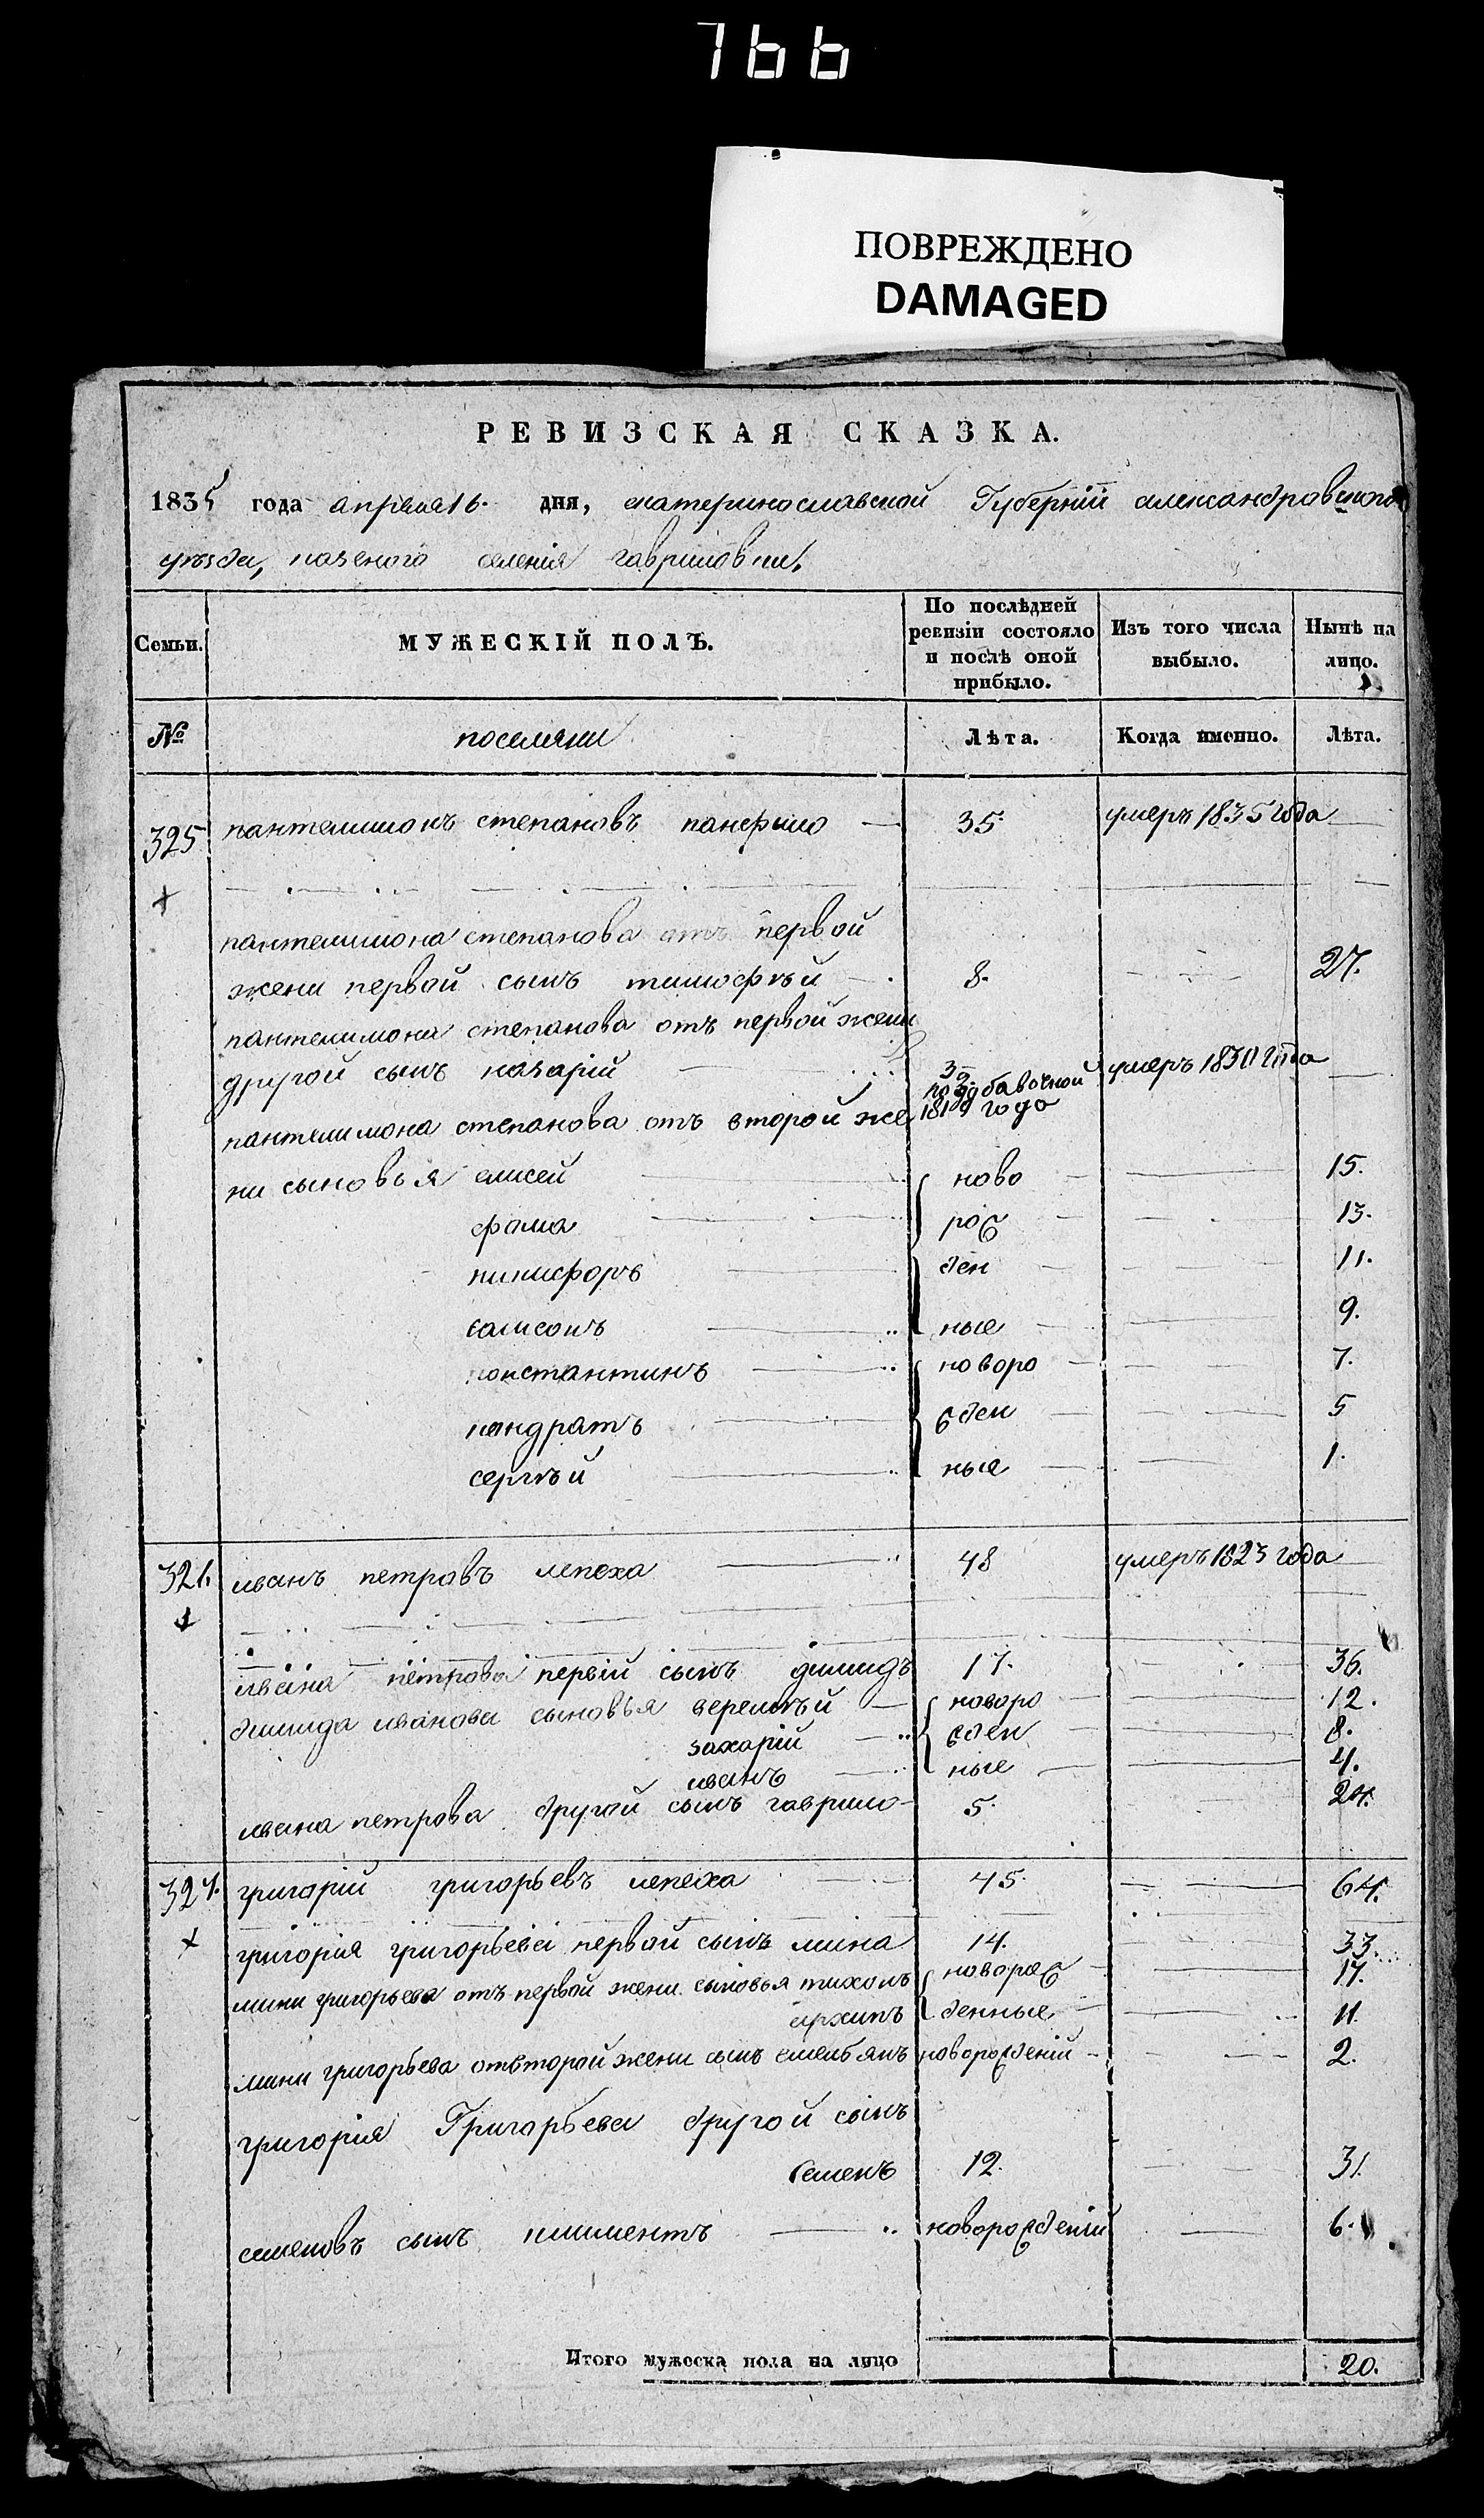 766
ПОВРЕЖДЕНО
DAMAGED
РЕВИЗСКАЯ СКАЗКА.
1835 года апреля 16. дня, екатеринославской Губерніи александровского
уѣзда, казеного селенія гавриловки,
Семьи. МУЖЕСКІЙ ПОЛЪ. По послѣдней ревизіи состояло и послѣ оной прибыло. Изъ того числа выбыло. Нынѣ на лицо.
№ поселяни Лѣта. Когда именно. Лѣта.
325 пантелимонъ степановъ панфило 35 умеръ 1835 года
пантелимона степанова отъ первой
жени первой сынъ тимофѣй 8. 27.
пантелимона степанова отъ первой жени
другой сынъ назарій умеръ 1830 года
по добавочной
пантелимона степанова отъ второй же
ни сыновья елисей ново 15.
фома рож 13.
никифоръ ден 11.
самсонъ ные 9.
константинъ новоро 7.
кондратъ жден 5
сергѣй ные 1.
иванъ петровъ лепеха 48 умеръ 1823 года
ивана петрова первій сынъ димидъ 17. 36.
димида иванова сыновья веремѣй новоро 12.
захарій жден 8.
иванъ ные 4.
ивана петрова другой сынъ гаврило 5. 24.
григорій григорьевъ лепеха 45. 64.
григорія григорьева первой сынъ мина 14. 33.
мини григорьева отъ первой жени сыновья тихонъ новорож 17.
архипъ денные 11.
мини григорьева отвторой жени сынъ емельянъ новорожденій 2.
григорія Григорьева другой сынъ
Семенъ 12. 31.
семеновъ сынъ климентъ новорожденій 6.
Итого мужеска пола на лицо 20.